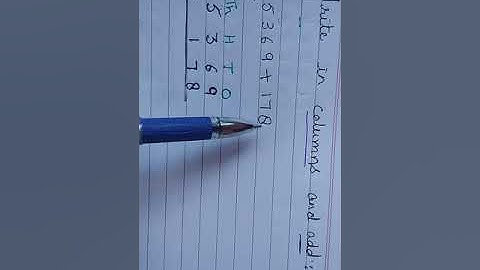 write in columns and add:
5369 + 178
Th H T O
5 3 6 9
1 7 8